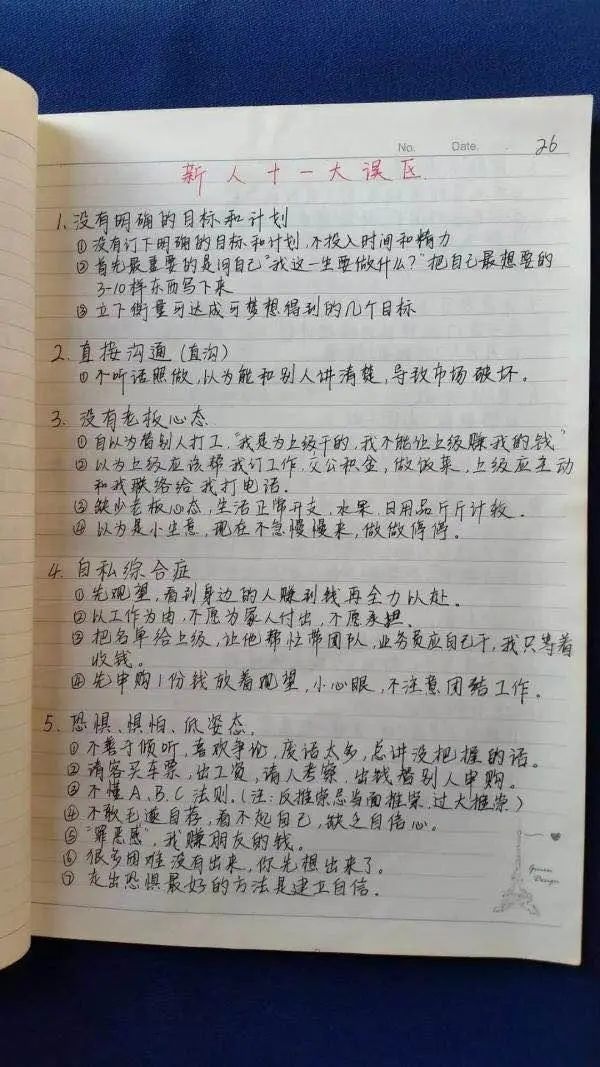 No. Date. 26
新人十一大误区
1. 没有明确的目标和计划
① 没有订下明确的目标和计划,不投入时间和精力
② 首先最重要的是问自己"我这一生要做什么?"把自己最想要的
3-10样东西写下来
③ 立下衡量可达成可梦想得到的几个目标
2. 直接沟通(直沟)
① 不听话照做,以为能和别人讲清楚,导致市场破坏。
3. 没有老板心态
① 自以为替别人打工,"我是为上级干的,我不能让上级赚我的钱"
② 以为上级应该帮我订工作,交公积金,做饭菜,上级应主动
和我联络给我打电话。
③ 缺少老板心态,生活正常开支,水果,日用品斤斤计较。
④ 以为是小生意,现在不急慢慢来,做做停停。
4. 自私综合症
① 先观望,看到身边的人赚到钱再全力以赴。
② 以工作为由,不愿为家人付出,不愿承担。
③ 把名单给上级,让他帮忙带团队,业务员应自己干,我只等着
收钱。
④ 先申购1份钱放着观望,小心眼,不注意团结工作。
5. 恐惧、惧怕、低姿态。
① 不善于倾听,喜欢争论,废话太多,总讲没把握的话。
② 请客买车票,出工资,请人考察,出钱替别人申购。
③ 不懂A、B、C法则。(注:反推崇忌当面推崇,过大推崇)
④ 不敢毛遂自荐,看不起自己,缺乏自信心。
⑤ "罪恶感",我赚朋友的钱。
⑥ 很多困难没有出来,你先想出来了。
⑦ 走出恐惧最好的方法是建立自信。